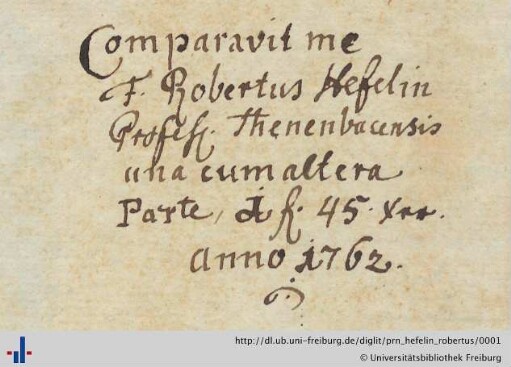 Comparavit me
F. Robertus Hefelin
Profess. Thenenbacensis
una cum altera
Parte, 1 fl. 45 xer.
anno 1762.
http://dl.ub.uni-freiburg.de/diglit/prn_hefelin_robertus/0001
© Universitätsbibliothek Freiburg